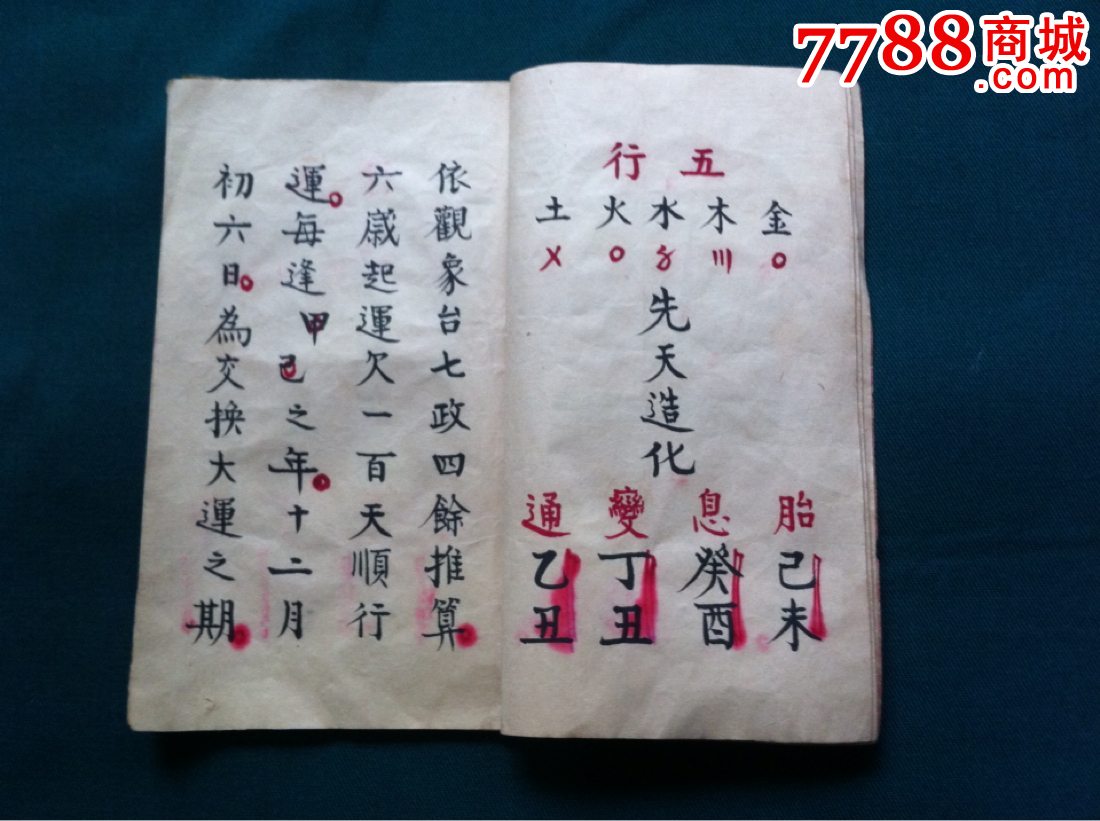 7788商城
.com
五行
金木水火土
先天造化
胎息變通
己未
癸酉
丁丑
乙丑
依觀象台七政四餘推算
六歲起運欠一百天順行
運每逢甲己之年十二月
初六日為交換大運之期